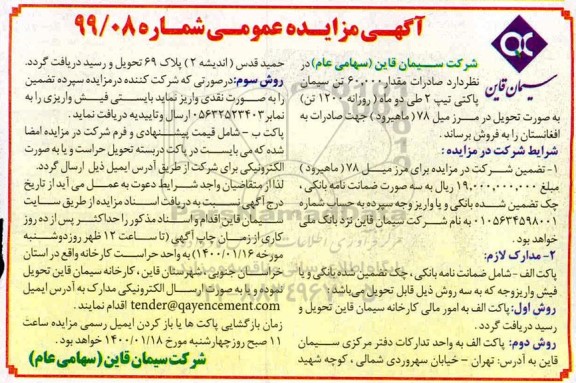 آگهی مزایده عمومی شماره ۹۹/۰۸
سیمان قاین
شرکت سیمان قاین (سهامی عام) در
نظر دارد صادرات مقدار ۶۰.۰۰۰ تن سیمان
پاکتی تیپ ۲ طی دو ماه ( روزانه ۱۲۰۰ تن)
به صورت تحویل در مرز میل ۷۸ (ماهیرود) جهت صادرات به
افغانستان را به فروش برساند .
شرایط شرکت در مزایده :
۱- تضمین شرکت در مزایده برای مرز میل ۷۸ (ماهیرود )
مبلغ ۱۹,۰۰۰,۰۰۰,۰۰۰ ریال به سه صورت ضمانت نامه بانکی ،
چک تضمین شده بانکی و یا واریز وجه سپرده به حساب شماره
۰۱۰۵۶۳۴۵۹۸۰۰۱ به نام شرکت سیمان قاین نزد بانک ملی
خواهد بود.
۲- مدارک لازم:
پاکت الف - شامل ضمانت نامه بانکی ، چک تضمین شده بانکی و یا
فیش واریز وجه که به سه روش ذیل قابل تحویل می‌باشد :
روش اول: پاکت الف به امور مالی کارخانه سیمان قاین تحویل و
رسید دریافت گردد.
روش دوم: پاکت الف به واحد تدارکات دفتر مرکزی سیمان
قاین به آدرس: تهران - خیابان سهروردی شمالی ، کوچه شهید
حمید قدس (اندیشه ۲ ) پلاک ۶۹ تحویل و رسید دریافت گردد.
روش سوم: درصورتی که شرکت کننده درمزایده سپرده تضمین
را به صورت نقدی واریز نماید بایستی فیش واریزی را به
نمابر ۰۵۶۳۲۵۲۳۴۰۳ ارسال و تاییدیه دریافت نماید .
پاکت ب - شامل قیمت پیشنهادی و فرم شرکت در مزایده امضا
شده که می بایست در پاکت دربسته تحویل حراست و یا به صورت
الکترونیکی برای شرکت از طریق آدرس ایمیل ذیل ارسال گردد.
لذا از متقاضیان واجد شرایط دعوت به عمل می آید از تاریخ
درج آگهی نسبت به دریافت اسناد مزایده از طریق سایت
سیمان قاین اقدام و اسناد مذکور را حداکثر پس از ده روز
کاری از زمان چاپ آگهی (تا ساعت ۱۲ ظهر روز دوشنبه
مورخه ۱۴۰۰/۰۱/۱۶) به واحد حراست کارخانه واقع در استان
خراسان جنوبی ، شهرستان قاین ، کارخانه سیمان قاین تحویل
نموده و یا به صورت ارسال الکترونیکی مدارک به آدرس ایمیل
tender@qayencement.com اقدام نمایند .
زمان بازگشایی پاکت ها یا باز کردن ایمیل رسمی مزایده ساعت
۱۱ صبح روز چهارشنبه مورخ ۱۴۰۰/۰۱/۱۸ خواهد بود .
شرکت سیمان قاین (سهامی عام)